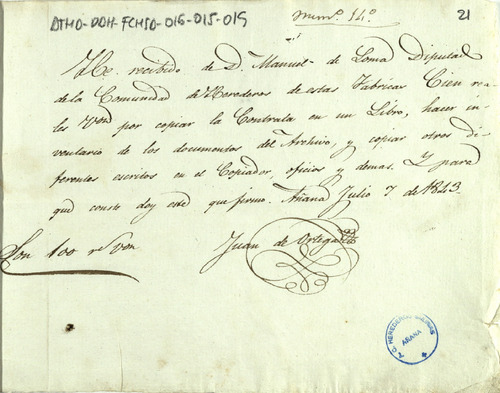 ATHO-DOH-FCHSD-016-015-019
Num.º 14.º
21
He recibido de D. Manuel de Loma Diputad
de la Comunidad de Herederos de estas Fabricas Cien rea
les Von por copiar la Contrata en un Libro, hacer in
ventario de los documentos del Archivo, y copiar otros di
ferentes escritos en el Copiador, oficios y demas. Y para
que conste doy este que firmo. Añana Julio 7 de 1843
Son 100 rs von
Juan de Ortega
HEREDEROS SALINAS
AÑANA